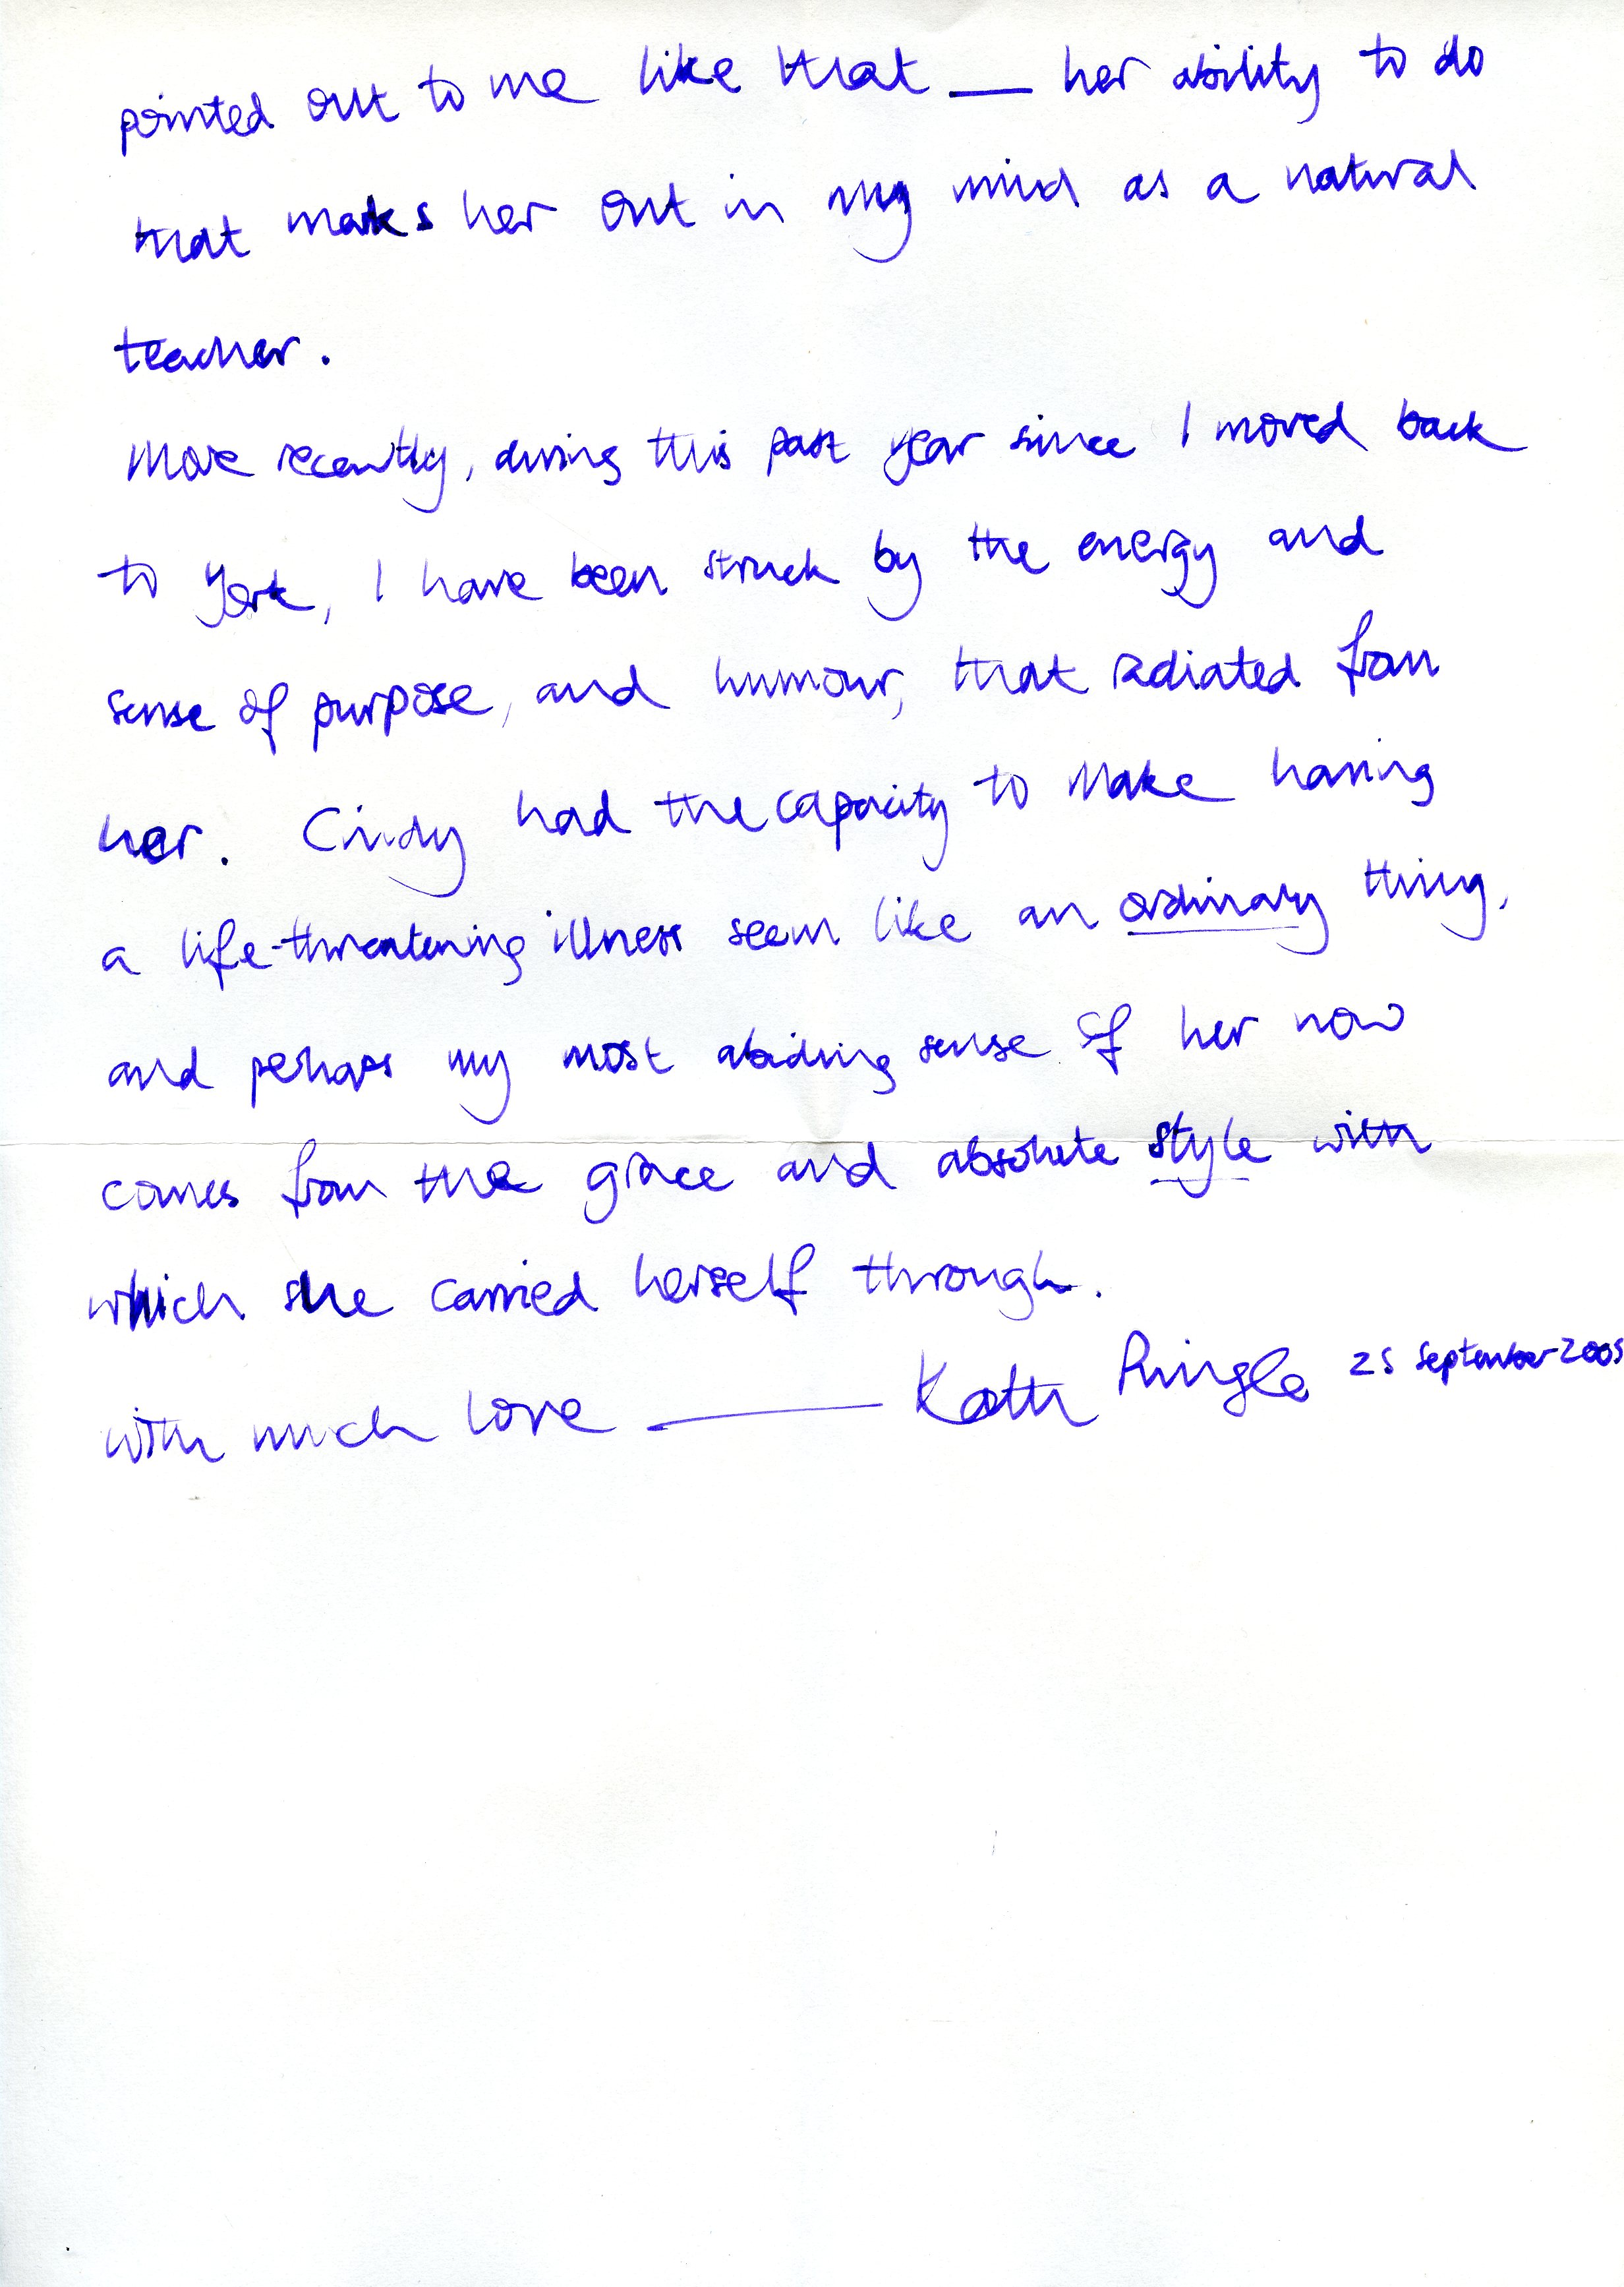 pointed out to me like that — her ability to do
that marks her out in my mind as a natural
teacher.
More recently, during this past year since I moved back
to York, I have been struck by the energy and
sense of purpose, and humour, that radiated from
her. Cindy had the capacity to make having
a life-threatening illness seem like an ordinary thing,
and perhaps my most abiding sense of her now
comes from the grace and absolute style with
which she carried herself through.
with much love — Kath Pringle 25 September 2005